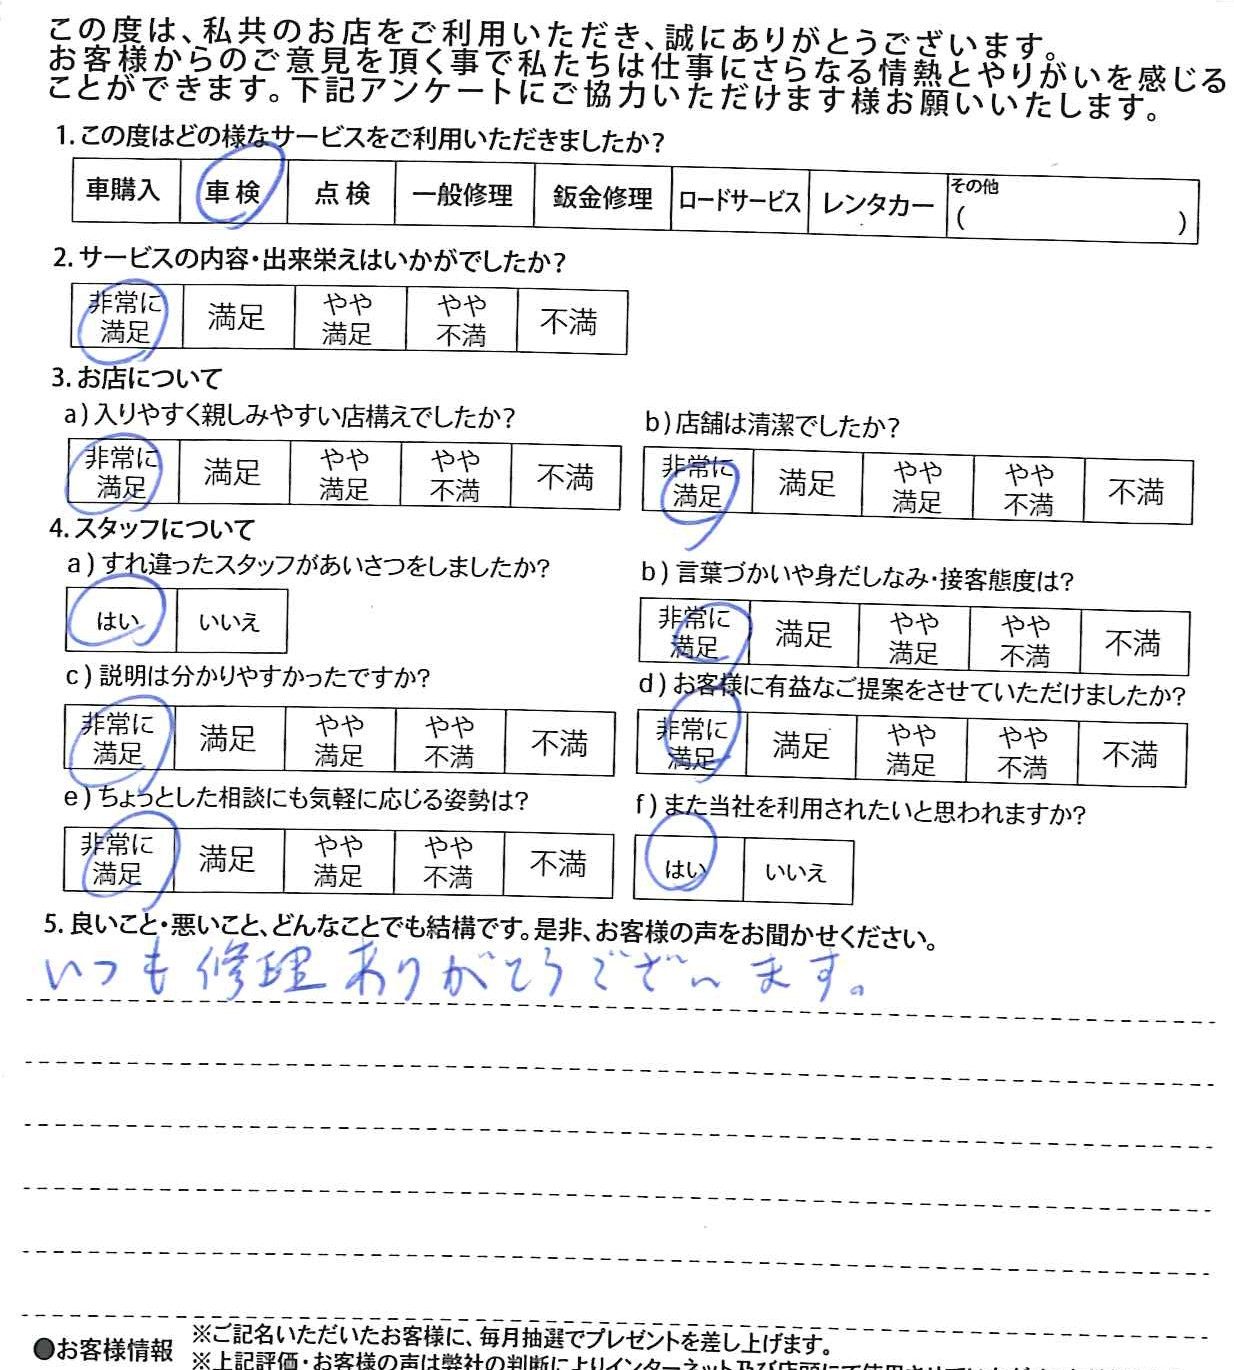 この度は、私共のお店をご利用いただき、誠にありがとうございます。
お客様からのご意見を頂く事で私たちは仕事にさらなる情熱とやりがいを感じる
ことができます。下記アンケートにご協力いただけます様お願いいたします。
1.この度はどの様なサービスをご利用いただきましたか?
車購入 車検 点検 一般修理 鈑金修理 ロードサービス レンタカー その他
( )
2.サービスの内容・出来栄えはいかがでしたか?
非常に 満足 やや やや 不満
満足 満足 不満
3.お店について
a)入りやすく親しみやすい店構えでしたか?
非常に 満足 やや やや 不満
満足 満足 不満
b)店舗は清潔でしたか?
非常に 満足 やや やや 不満
満足 満足 不満
4.スタッフについて
a)すれ違ったスタッフがあいさつをしましたか?
はい いいえ
b)言葉づかいや身だしなみ・接客態度は?
非常に 満足 やや やや 不満
満足 満足 不満
c)説明は分かりやすかったですか?
非常に 満足 やや やや 不満
満足 満足 不満
d)お客様に有益なご提案をさせていただけましたか?
非常に 満足 やや やや 不満
満足 満足 不満
e)ちょっとした相談にも気軽に応じる姿勢は?
非常に 満足 やや やや 不満
満足 満足 不満
f)また当社を利用されたいと思われますか?
はい いいえ
5.良いこと・悪いこと、どんなことでも結構です。是非、お客様の声をお聞かせください。
いつも修理ありがとうございます。
●お客様情報 ※ご記名いただいたお客様に、毎月抽選でプレゼントを差し上げます。
※上記評価・お客様の声は弊社の判断によりインターネット及び店頭にて使用させていただ